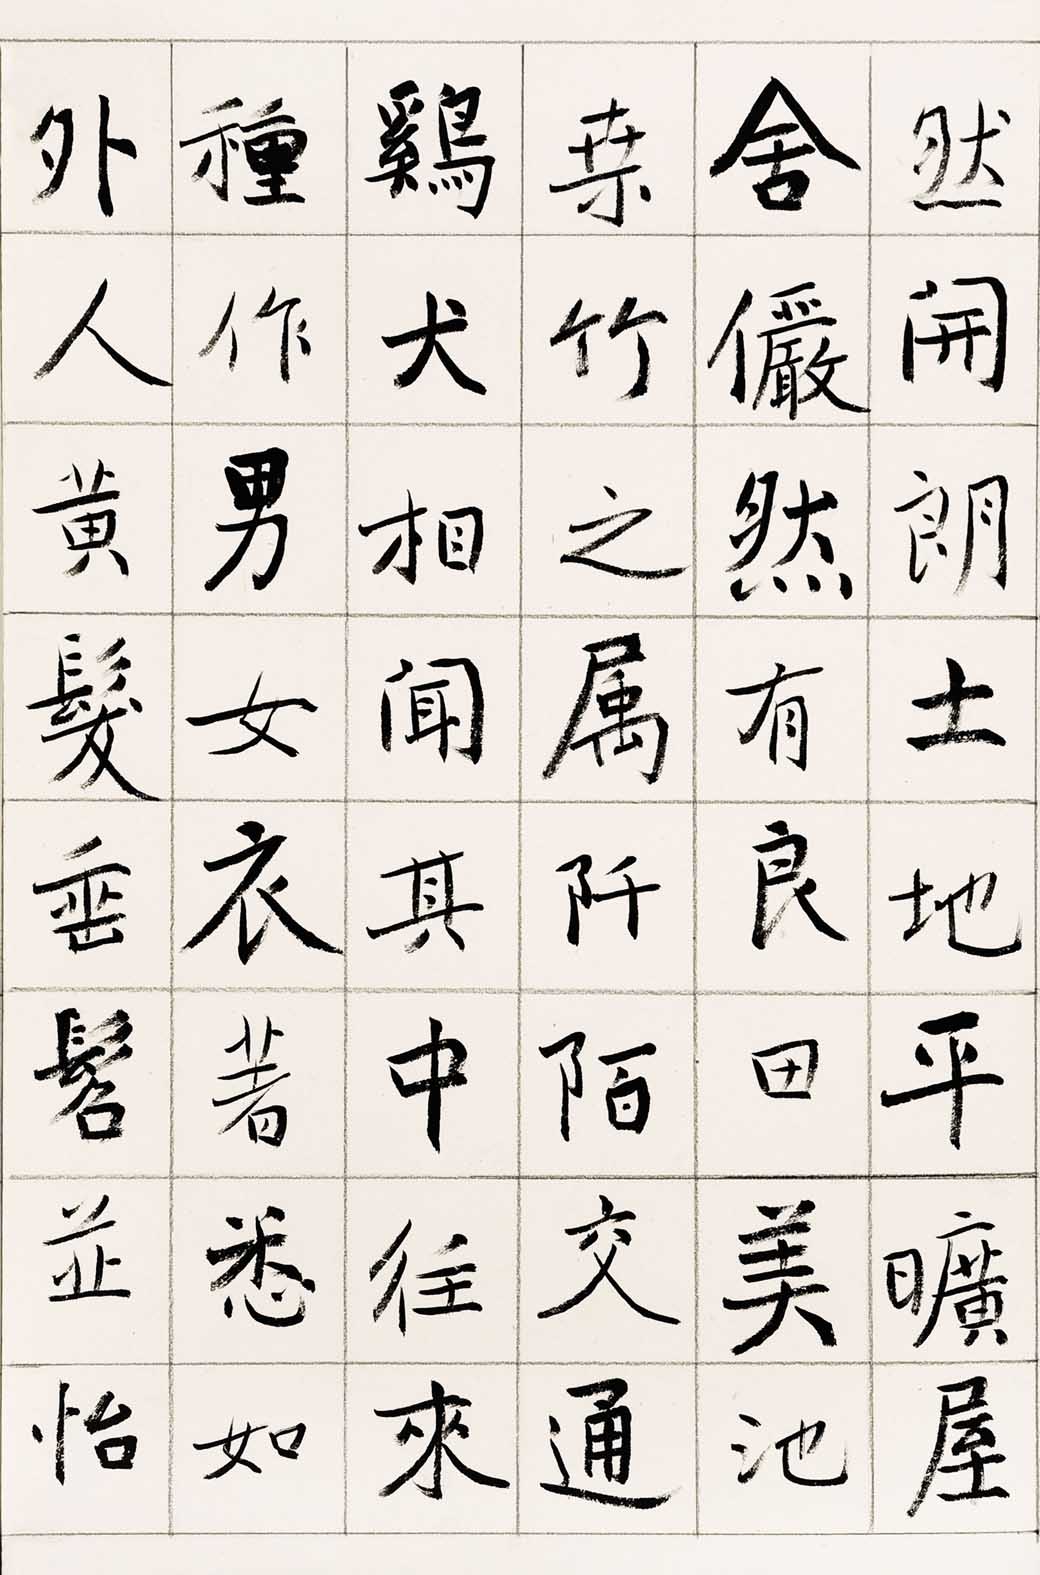 然開朗土地平曠屋
舍儼然有良田美池
桒竹之属阡陌交通
鷄犬相聞其中往來
種作男女衣著悉如
外人黃髮垂髫並怡